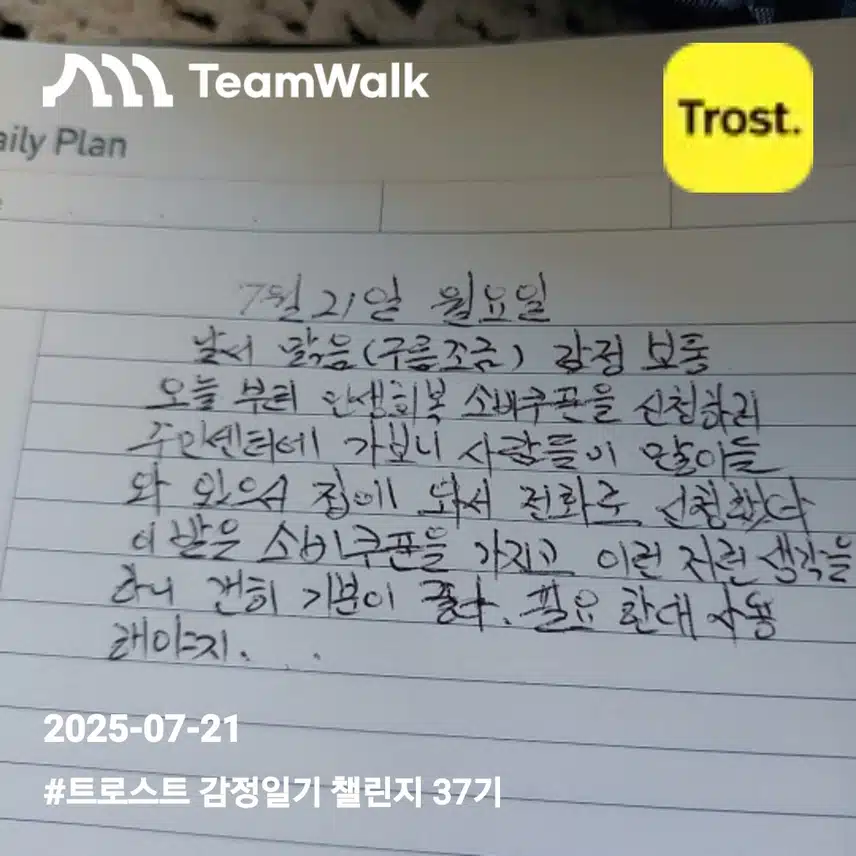 TeamWalk
Trost.
aily Plan
7월 21일 월요일
날서 맑음(구름조금) 감정 보통
오늘 부터 민생회복 소비쿠폰을 신청하러
주민센터에 가보니 사람들이 많이들
와 있으서 집에 와서 전화로 신청했다
이 받은 소비쿠폰들 가지고 이런 저런 생각을
하니 갠히 기분이 좋다. 필요 한대 사용
래야지. . .
2025-07-21
#트로스트 감정일기 챌린지 37기